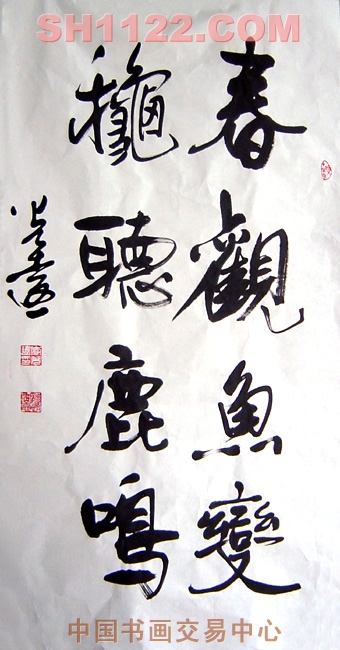 SH1122.COM
春觀魚變
龝聽鹿鳴
中国书画交易中心